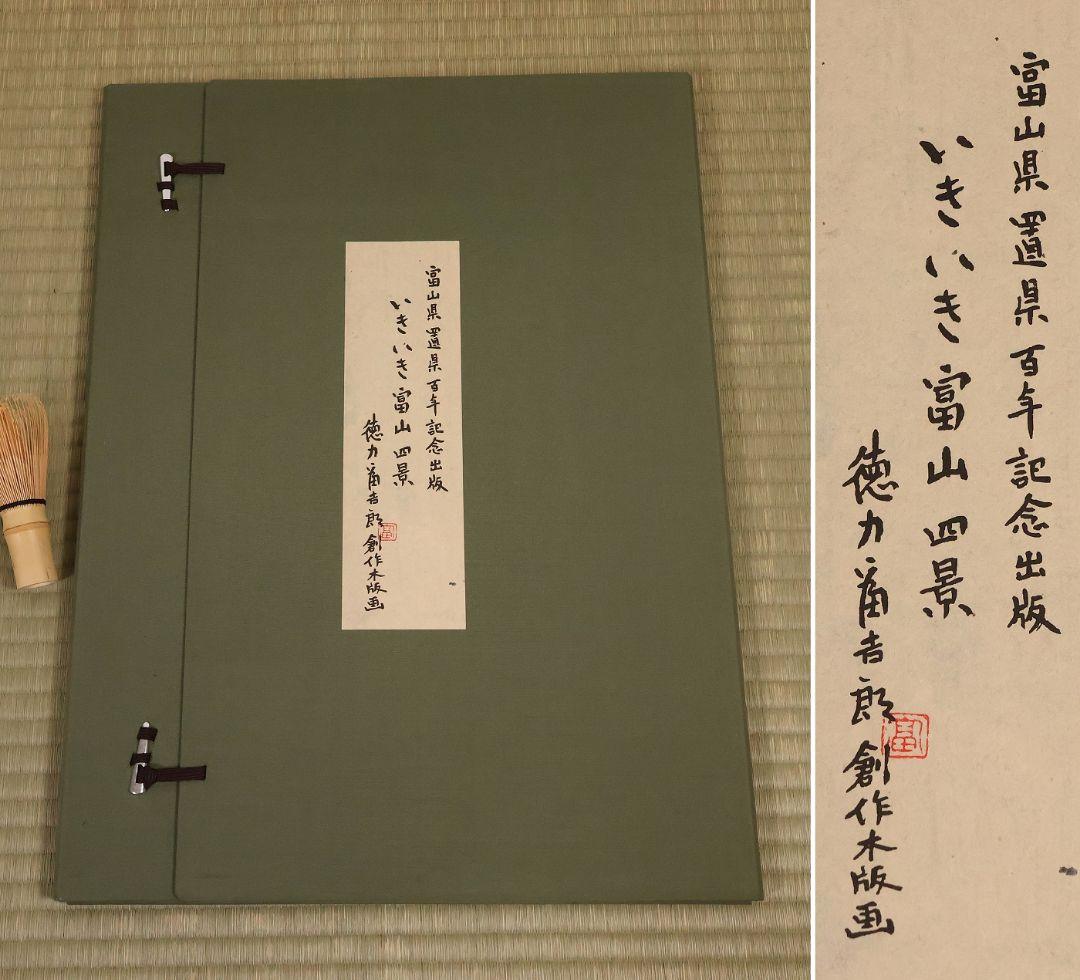 富山県置県百年記念出版
いきいき富山四景
徳力富吉郎創作木版画
富山県置県百年記念出版
いきいき富山四景
徳力富吉郎創作木版画